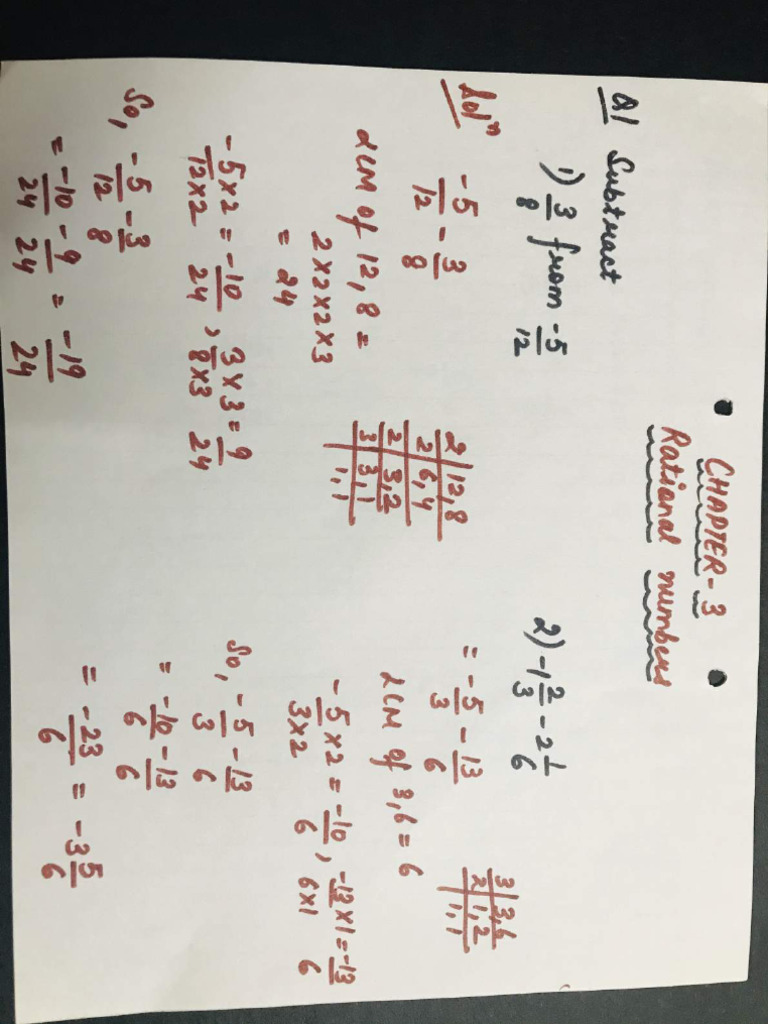 CHAPTER-3
Rational numbers
Q1 Subtract
1) 3/8 from -5/12
Solⁿ -5/12 - 3/8
LCM of 12, 8 =
2×2×2×3
= 24
2 | 12, 8
2 | 6, 4
2 | 3, 2
3 | 3, 1
1, 1
-5×2/12×2 = -10/24 , 3×3/8×3 = 9/24
So, -5/12 - 3/8
= -10/24 - 9/24 = -19/24
2) -1 2/3 - 2 1/6
= -5/3 - 13/6
3 | 3, 6
2 | 1, 2
1, 1
LCM of 3, 6 = 6
-5×2/3×2 = -10/6 , -13×1/6×1 = -13/6
So, -5/3 - 13/6
= -10/6 - 13/6
= -23/6 = -3 5/6